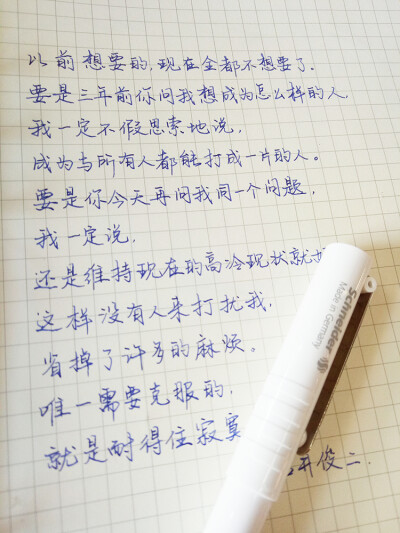 以前想要的,现在全都不想要了.
要是三年前你问我想成为怎么样的人,
我一定不假思索地说,
成为与所有人都能打成一片的人。
要是你今天再问我同一个问题,
我一定说,
还是维持现在的高冷现状就
这样没有人来打扰我,
省掉了许多的麻烦。
唯一需要克服的,
就是耐得住寂寞
井俊二.
Schneider
Made in Germany